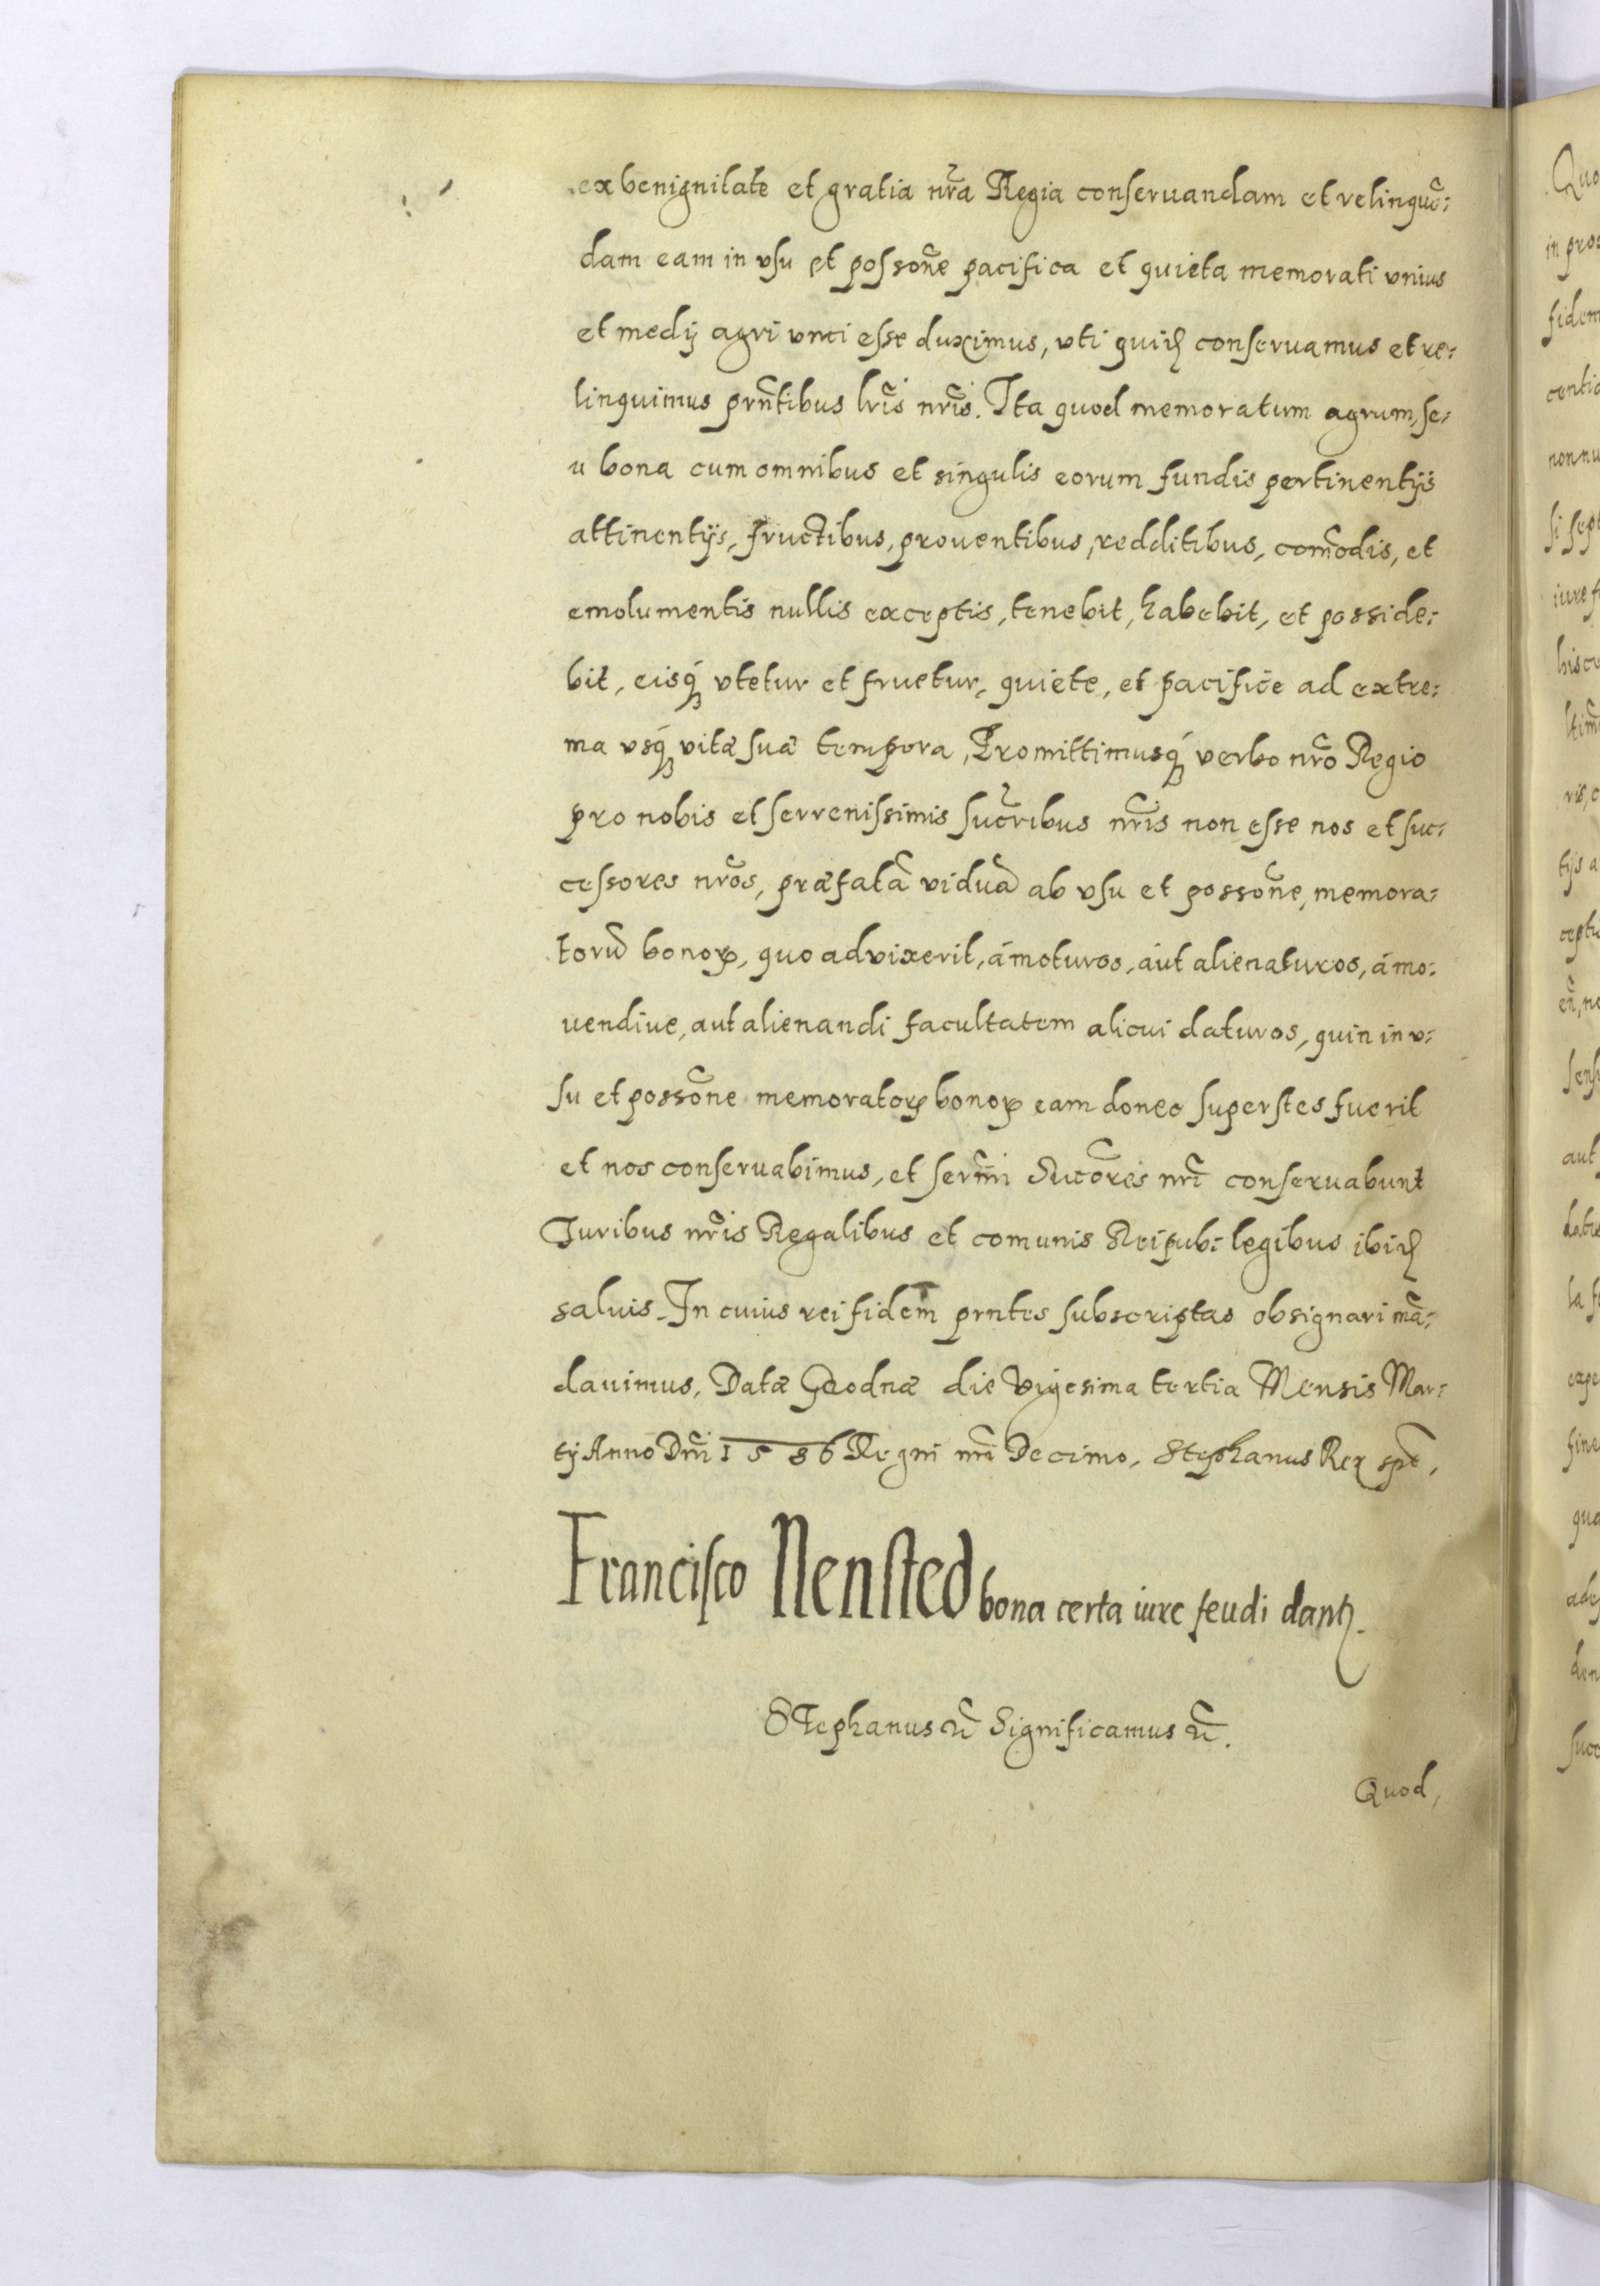 ex benignitate et gratia nr̃a Regia conseruandam et relinquẽ:
dam eam in vsu et possoñe pacifica et quieta memorati vnius
et medij agri vnci esse duximus, vti quid conseruamus et re:
linquimus prñtibus lr̃is nr̃is. Ita quod memoratum agrum, se:
u bona cum omnibus et singulis eorum fundis pertinentijs
attinentijs, fructibus, prouentibus, redditibus, com̃odis, et
emolumentis nullis exceptis, tenebit, habebit, et posside:
bit, eisq́ꝫ vtetur et fruetur, quiete, et pacifice ad extre:
ma vsq́ꝫ vitæ suæ tempora, Promittimusq́ꝫ verbo nr̃o Regio
pro nobis et serrenissimis suc̃ribus nr̃is non esse nos et suc:
cessores nr̃os, præfatã viduã ab vsu et possoñe, memora:
torũ bonoꝝ, quo advixerit, ámoturos, áut alienaturos, ámo:
uendiue, aut alienandi facultatem alicui daturos, quin in v:
su et possoñe memoratoꝝ bonoꝝ eam donec superstes fuerit
et nos conseruabimus, et serm̃i Succõres nr̃i conseruabunt
Iuribus nr̃is Regalibus et comunis Reipub: legibus ibid
saluis. In cuius rei fidem prntes subscriptas obsignari mã:
dauimus, Datæ Grodnæ die Vigesima tertia Mensis Mar:
tij Anno Dñi 1586 Regni nr̃i Decimo, Stephanus Rex spt̃,
Francisco Nensted bona certa iure feudi dantꝫ.
Stephanus &c̃ Significamus &c̃.
Quod,